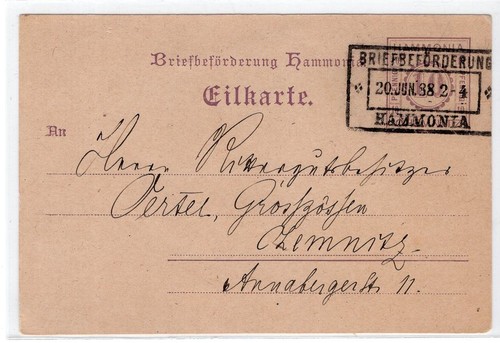 HAMMONIA
Briefbeförderung Hammonia
BRIEFBEFÖRDERUNG
20.JUN.88 2-4
HAMMONIA
10
Eilkarte.
An
Herrn Rittergutsbesitzer
Oertel, Grosszössen
Chemnitz.
Annabergerstr 11.